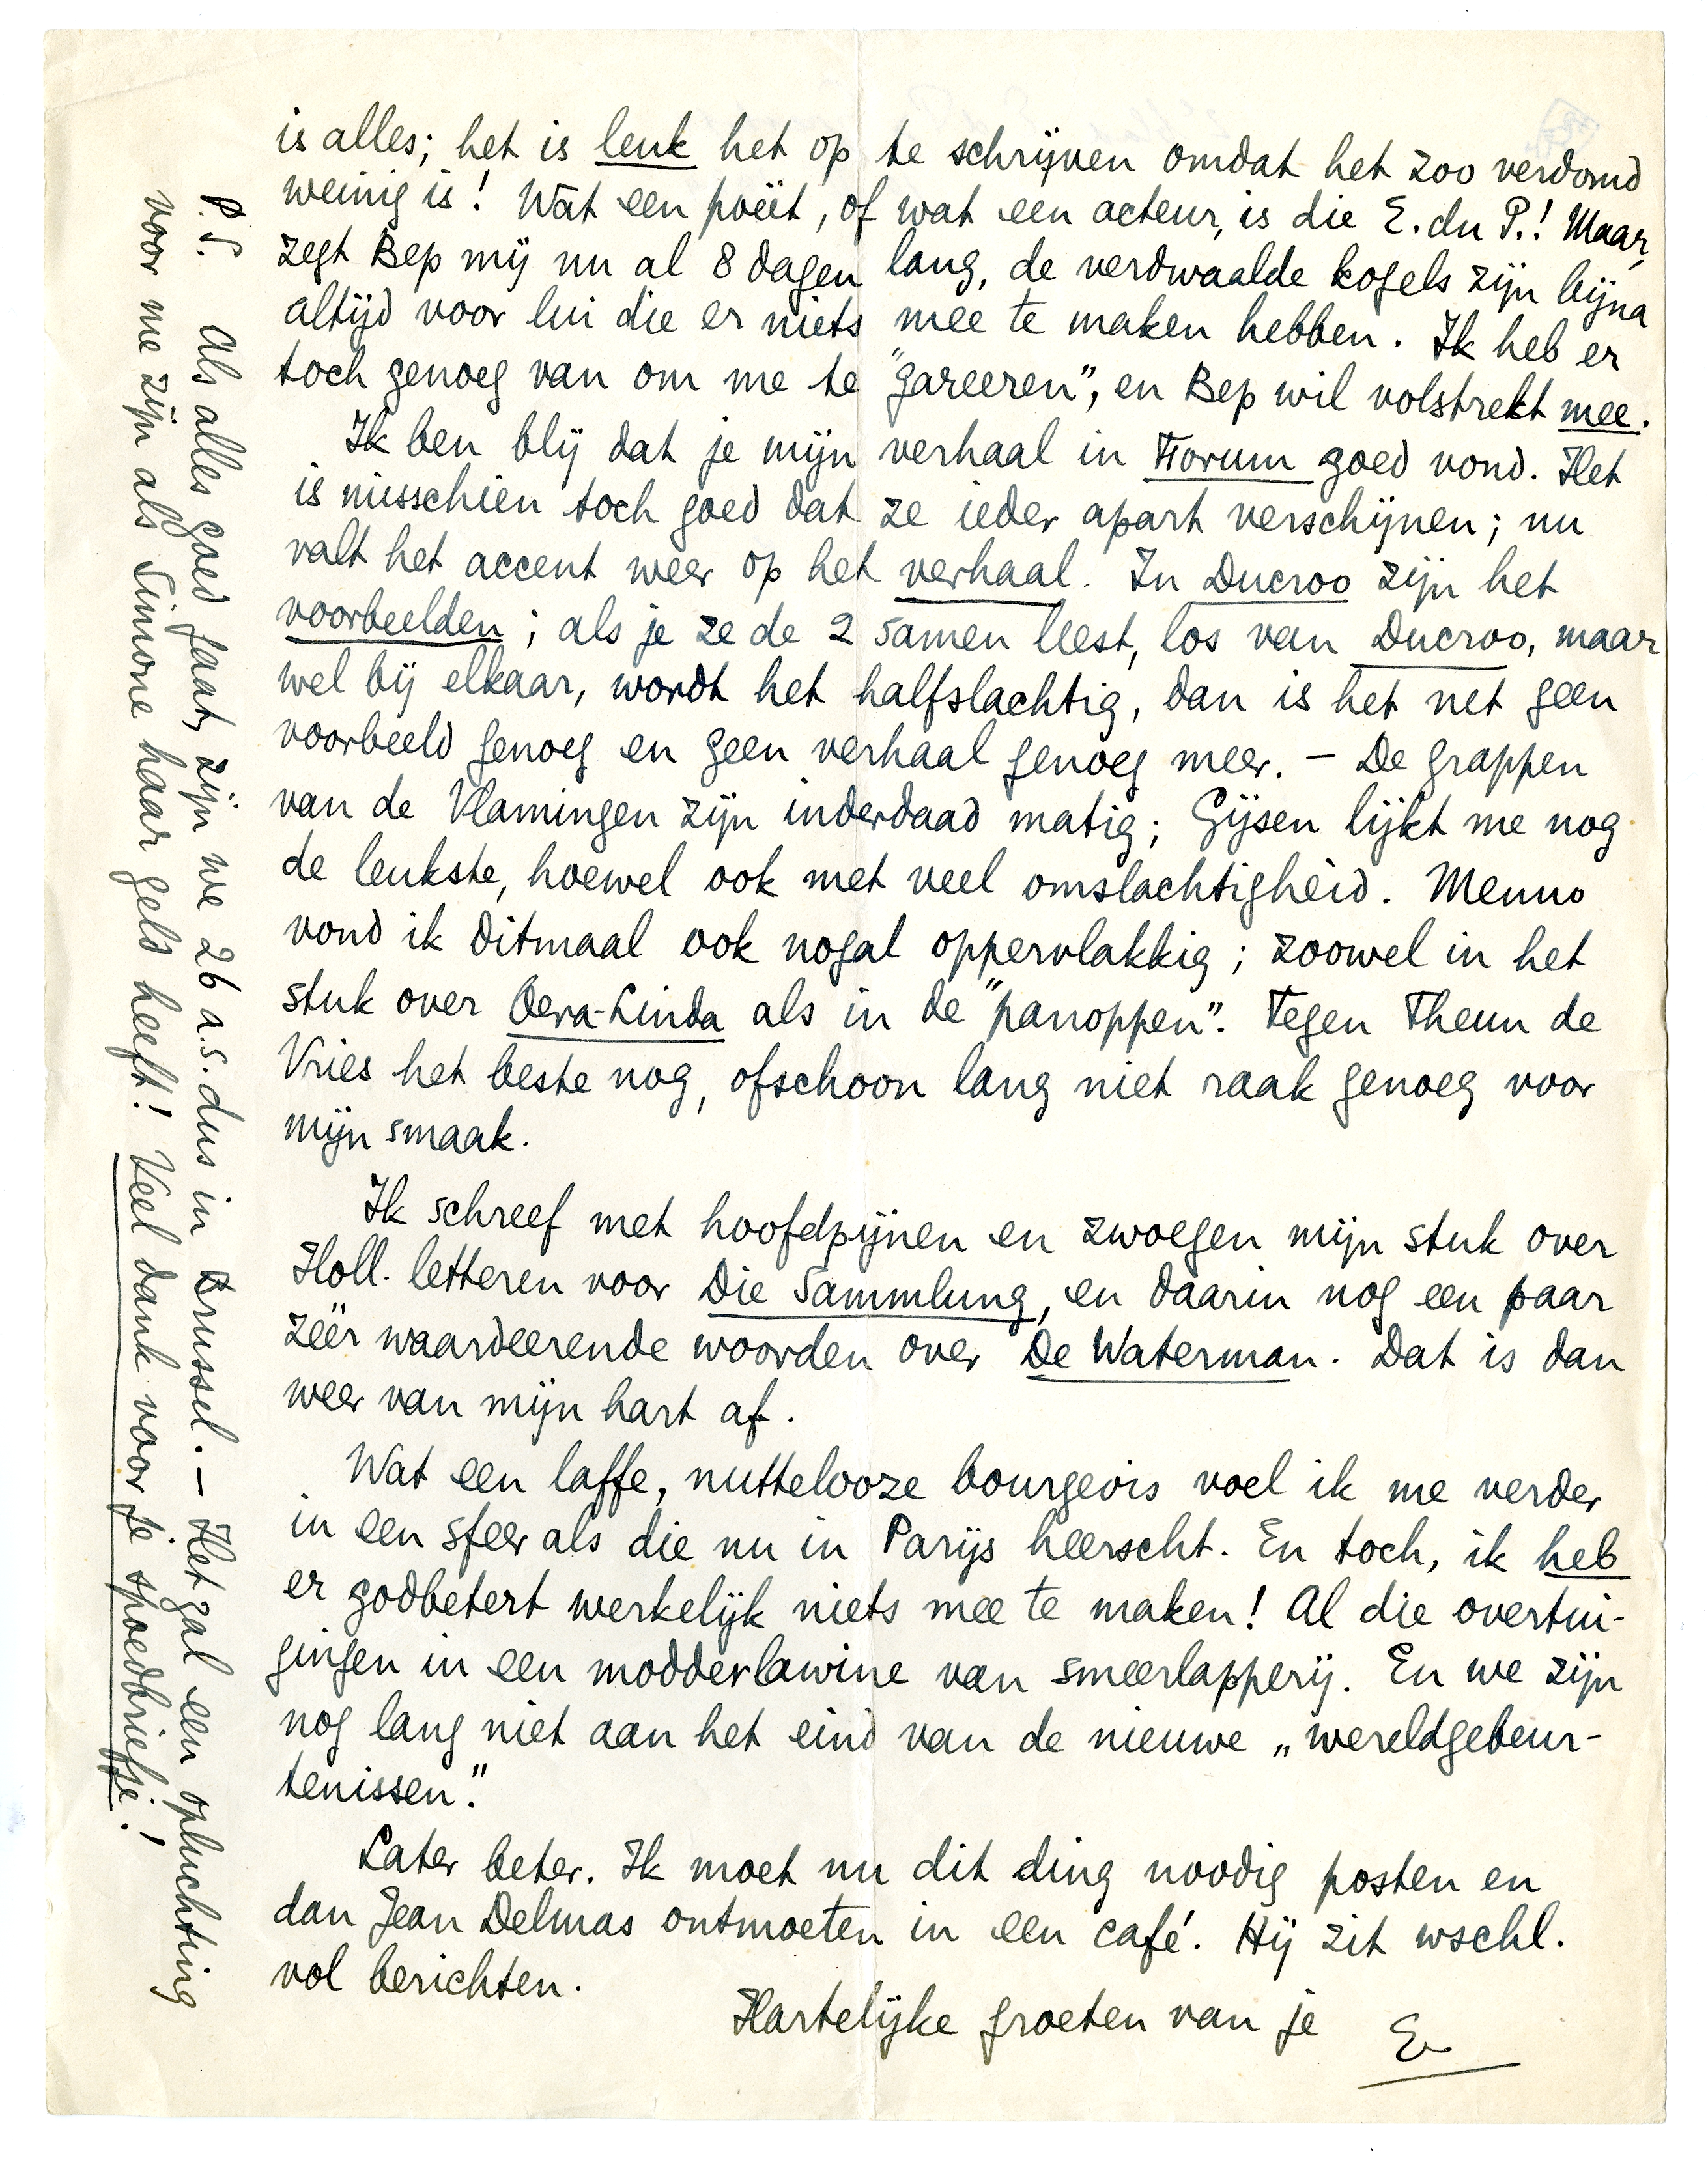 is alles; het is leuk het op te schrijven omdat het zoo verdomd
weinig is! Wat een poëet, of wat een acteur, is die E. du P.! Maar,
zegt Bep mij nu al 8 dagen lang, de verdwaalde kogels zijn bijna
altijd voor lui die er niets mee te maken hebben. Ik heb er
toch genoeg van om me te "gareeren", en Bep wil volstrekt mee.
Ik ben blij dat je mijn verhaal in Forum goed vond. Het
is misschien toch goed dat ze ieder apart verschijnen; nu
valt het accent weer op het verhaal. In Ducroo zijn het
voorbeelden; als je ze de 2 samen leest, los van Ducroo, maar
wel bij elkaar, wordt het halfslachtig, dan is het net geen
voorbeeld genoeg en geen verhaal genoeg meer. – De grappen
van de Vlamingen zijn inderdaad matig; Gijsen lijkt me nog
de leukste, hoewel ook met veel omslachtigheid. Menno
vond ik ditmaal ook nogal oppervlakkig; zoowel in het
stuk over Oera-Linda als in de "panoppen". Tegen Theun de
Vries het beste nog, ofschoon lang niet raak genoeg voor
mijn smaak.
Ik schreef met hoofdpijnen en zwoegen mijn stuk over
Holl. letteren voor Die Sammlung, en daarin nog een paar
zeer waardeerende woorden over De Waterman. Dat is dan
weer van mijn hart af.
Wat een laffe, nuttelooze bourgeois voel ik me verder
in een sfeer als die nu in Parijs heerscht. En toch, ik heb
er godbetert werkelijk niets mee te maken! Al die overtui-
gingen in een modderlawine van smeerlapperij. En we zijn
nog lang niet aan het eind van de nieuwe „wereldgebeur-
tenissen."
Later beter. Ik moet nu dit ding noodig posten en
dan Jean Delmas ontmoeten in een café. Hij zit wschl.
vol berichten.
Hartelijke groeten van je
E
P.S. Als alles goed gaat, zijn we 26 a.s. dus in Brussel. – Het zal een opluchting
voor me zijn als Simone haar geld heeft! Veel dank voor je spoedbriefje!